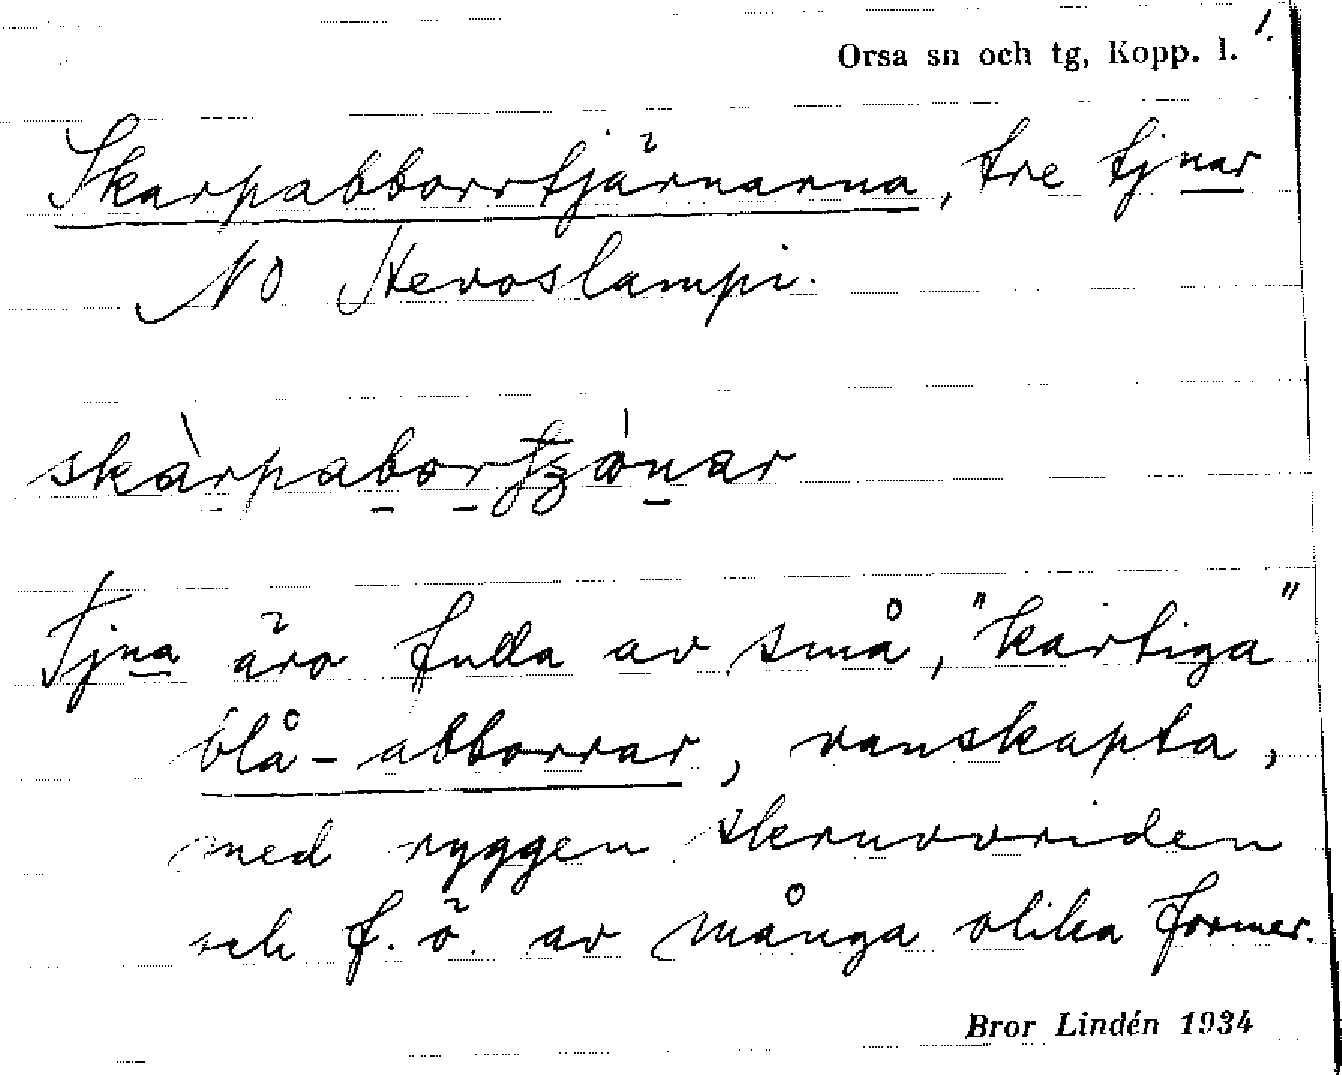 1.
Orsa sn och tg, Kopp. l.
Skarpabborrtjärnarna, tre tjnar
NO Hevoslampi.
skàrpabortʒö́nar
Tjna äro fulla av små, "kartiga"
blå-abborrar, vanskapta,
med ryggen skruvvriden
och f. ö. av många olika former.
Bror Lindén 1934